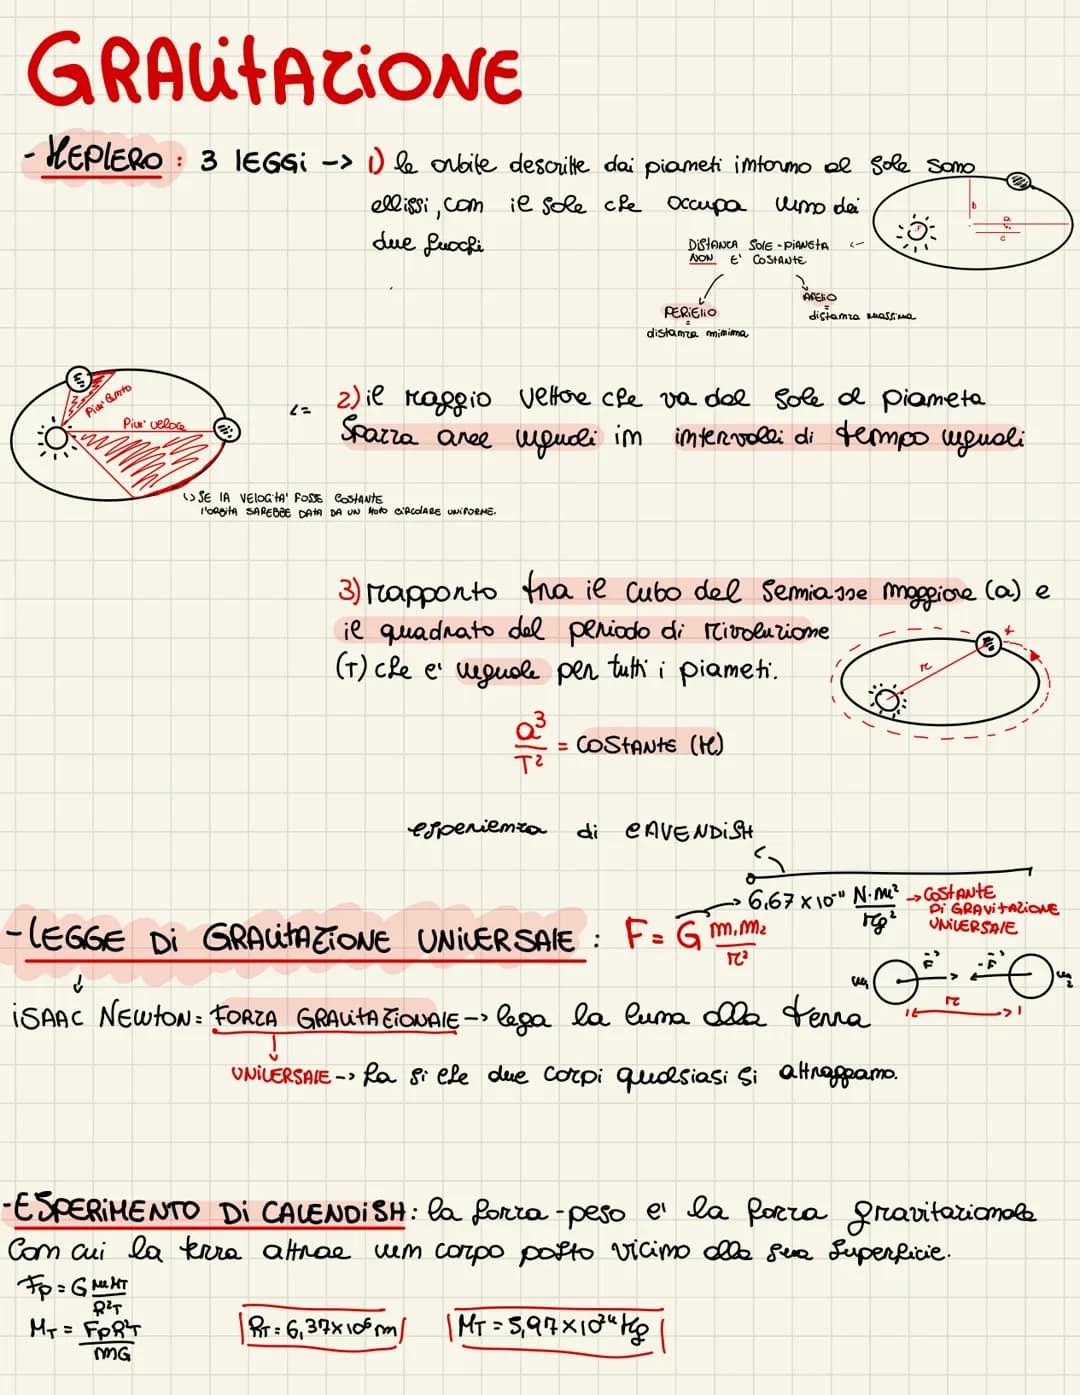 GRAVITAZIONE
- KEPLERO : 3 LEGGI -> 1) le orbite descritte dai pianeti intorno al Sole sono
ellissi, con il sole che occupa uno dei
due fuochi
F
b
a
c
DISTANZA SOLE-PIANETA <-
NON E' COSTANTE
PERIELIO
=
distanza minima
AFELIO
=
distanza massima
Più veloce
<= 2) il raggio vettore che va dal Sole al pianeta
Spazza aree uguali in intervalli di tempo uguali
↳ SE LA VELOCITA' FOSSE COSTANTE
l'ORBITA SAREBBE DATA DA UN MOTO CIRCOLARE UNIFORME.
3) rapporto tra il cubo del Semiasse maggiore (a) e
il quadrato del periodo di rivoluzione
(T) che e' uguale per tutti i pianeti.
r
a³/T² = COSTANTE (K)
esperienza di CAVENDISH
-> 6,67 x 10⁻¹¹ N·m²/Kg² -> COSTANTE
DI GRAVITAZIONE
UNIVERSALE
- LEGGE DI GRAVITAZIONE UNIVERSALE : F = G m₁m₂/r²
m₁ F -F m₂
r
ISAAC NEWTON = FORZA GRAVITAZIONALE -> lega la luna alla terra
UNIVERSALE -> fa si che due corpi qualsiasi si attraggano.
- ESPERIMENTO DI CAVENDISH : la forza-peso e' la forza gravitazionale
Con cui la terra attrae un corpo posto vicino alla sua Superficie.
Fp = G mMT/R²T
MT = FpR²T/mG
RT = 6,37x10⁶ m
MT = 5,97x10²⁴ Kg